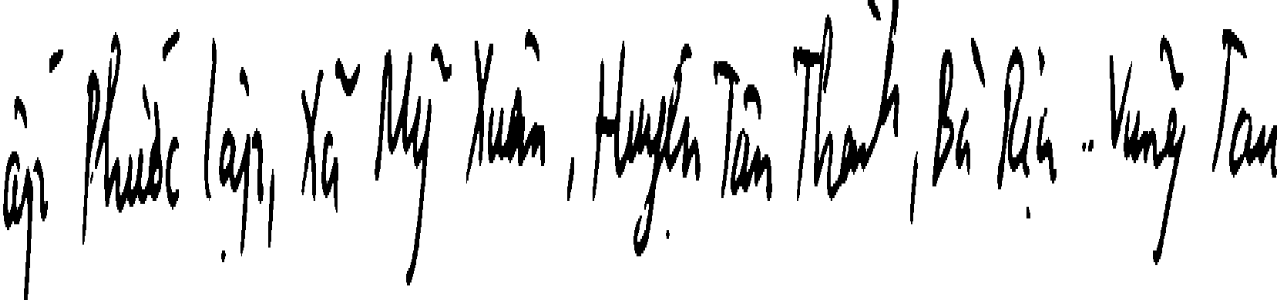 ấp Phước lập, Xã Mỹ Xuân, Huyện Tân Thành, Bà Rịa - Vũng Tàu